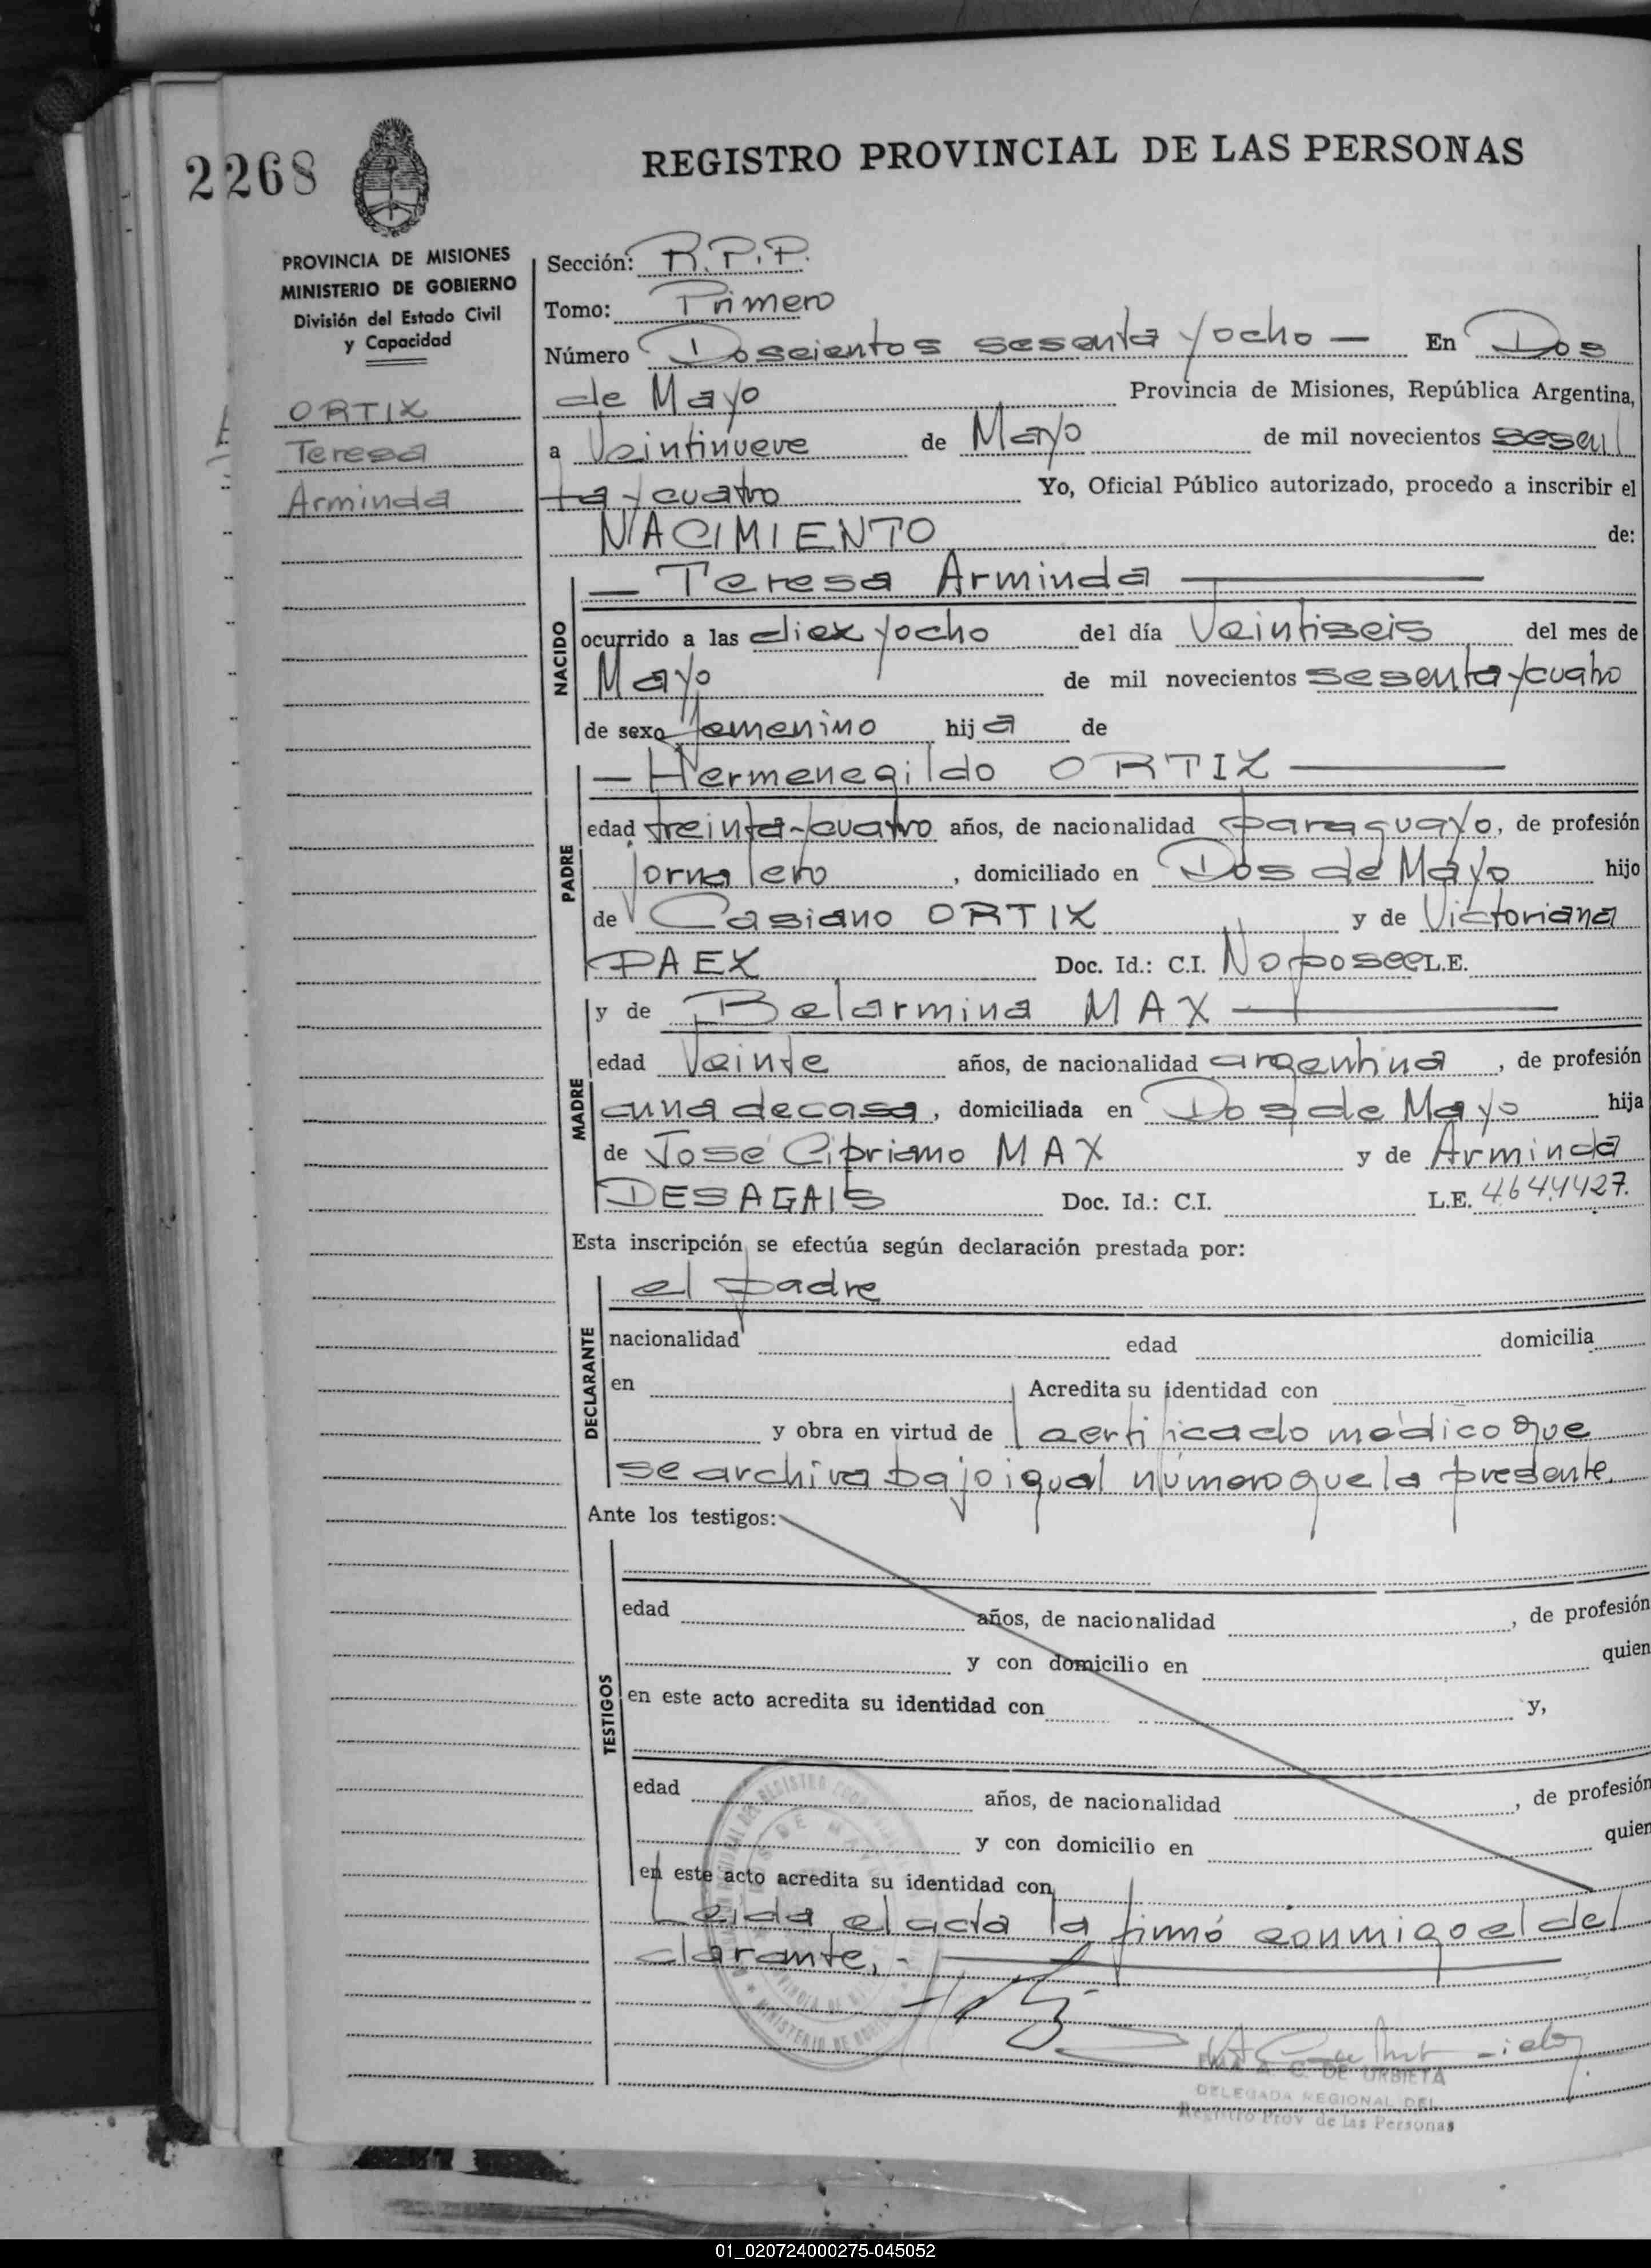 2268
REGISTRO PROVINCIAL DE LAS PERSONAS
PROVINCIA DE MISIONES
MINISTERIO DE GOBIERNO
División del Estado Civil
y Capacidad
ORTIZ
Teresa
Arminda
Sección: R.P.P.
Tomo: Primero
Número Doscientos sesenta y ocho — En Dos
de Mayo Provincia de Misiones, República Argentina,
a Veintinueve de Mayo de mil novecientos sesen
ta y cuatro Yo, Oficial Público autorizado, procedo a inscribir el
NACIMIENTO de:
NACIDO
— Teresa Arminda —
ocurrido a las diez y ocho del día Veintiseis del mes de
Mayo de mil novecientos sesenta y cuatro
de sexo femenino hija de
PADRE
— Hermenegildo ORTIZ —
edad treinta y cuatro años, de nacionalidad paraguayo, de profesión
jornalero, domiciliado en Dos de Mayo hijo
de Casiano ORTIZ y de Victoriana
PAEZ Doc. Id.: C.I. No posee L.E.
MADRE
y de Belarmina MAX —
edad Veinte años, de nacionalidad argentina, de profesión
ama de casa, domiciliada en Dos de Mayo hija
de José Cipriano MAX y de Arminda
DESAGAIS Doc. Id.: C.I. L.E. 4.644.427.
Esta inscripción se efectúa según declaración prestada por:
DECLARANTE
el padre
nacionalidad edad domicilia
en Acredita su identidad con
y obra en virtud de certificado médico que
se archiva bajo igual número que la presente.
Ante los testigos:
TESTIGOS
edad años, de nacionalidad , de profesión
y con domicilio en quien
en este acto acredita su identidad con y,
edad años, de nacionalidad , de profesión
y con domicilio en quien
en este acto acredita su identidad con
Leida el acta la firmó conmigo el de
clarante.-
C. DE URBIETA
DELEGADA REGIONAL DEL
Registro Prov de las Personas
01_020724000275-045052